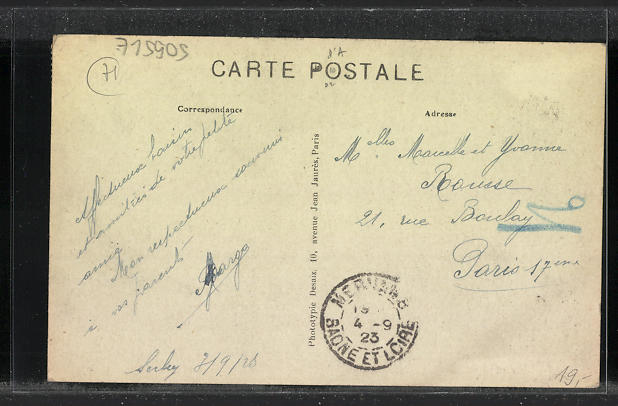 715905
71
CARTE POSTALE
Correspondance
Adresse
Affectueux baisers
et amitiés de votre petite
amie
Mon respectueux souvenir
à vos parents
Margo
3/9/23
Phototypie Desaix, 10, avenue Jean Jaurès, Paris
Melles Marcelle et Yvonne
Rousse
21, rue Boulay
Paris 17eme
4 - 9
23
SAONE ET LOIRE
19,-